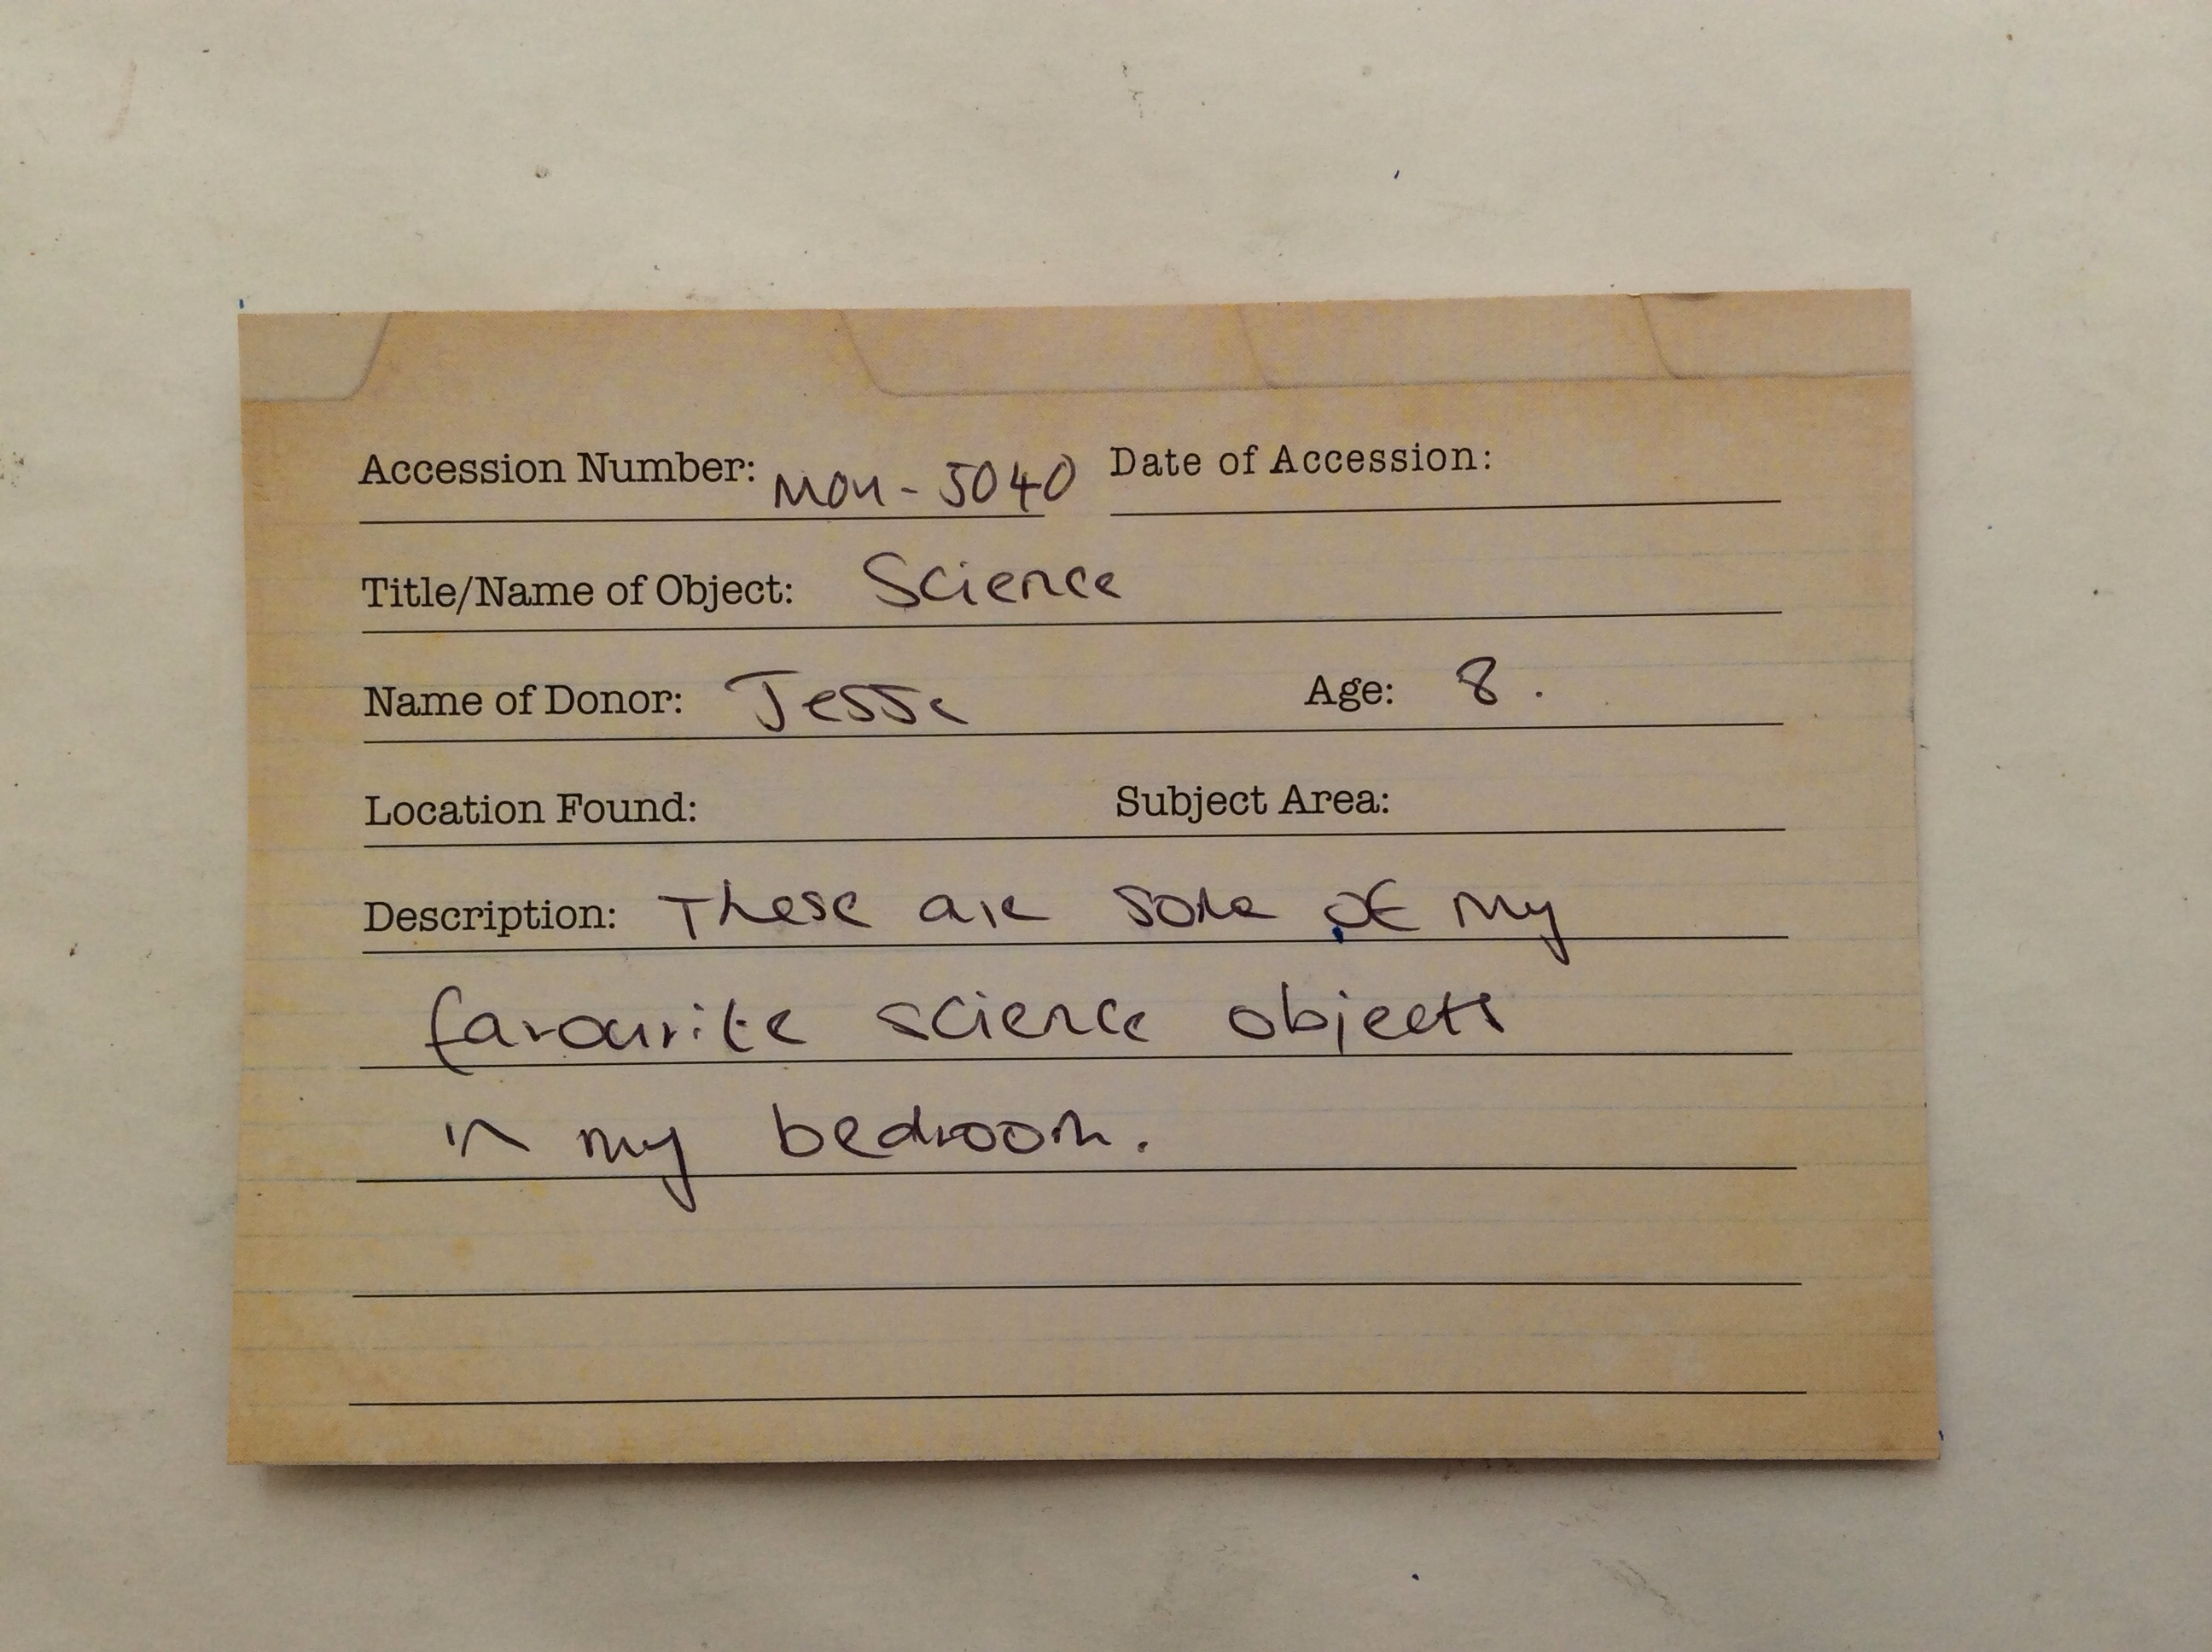 Accession Number: MOU-5040 Date of Accession:
Title/Name of Object: Science
Name of Donor: Jesse Age: 8.
Location Found: Subject Area:
Description: These are some of my
favourite science objects
in my bedroom.